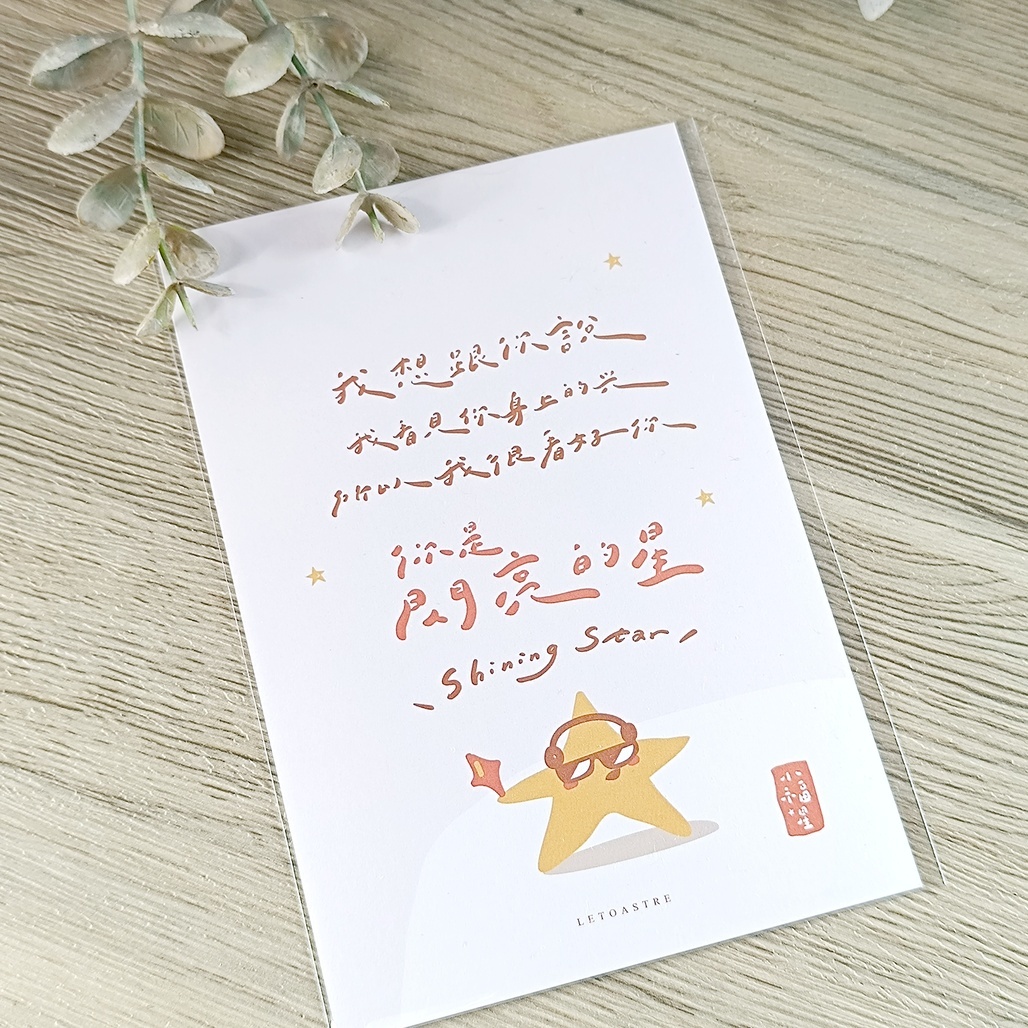 我想跟你說
我看見你身上的光
所以我很看好你
你是
閃亮的星
Shining Star
小福星
LETOASTRE